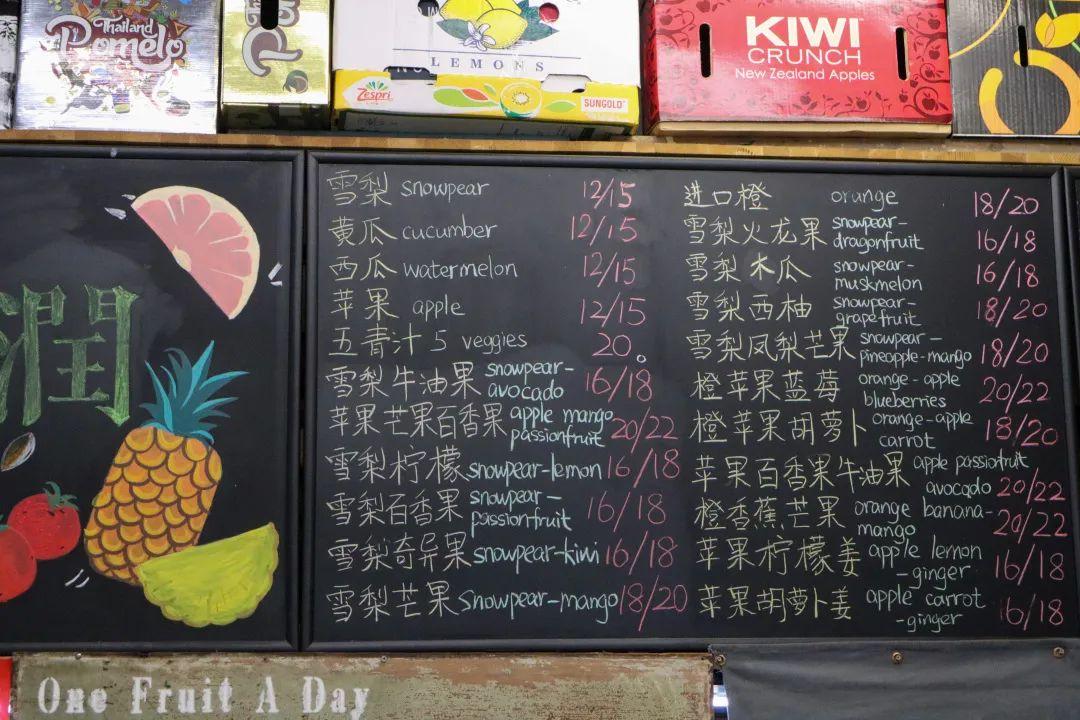 Thailand
Pomelo
LEMONS
Zespri
SUNGOLD
KIWI
CRUNCH
New Zealand Apples
潤
雪梨 snowpear 12/15
黄瓜 cucumber 12/15
西瓜 watermelon 12/15
苹果 apple 12/15
五青汁 5 veggies 20。
雪梨牛油果 snowpear-
avocado 16/18
苹果芒果百香果 apple mango
passionfruit 20/22
雪梨柠檬 snowpear-lemon 16/18
雪梨百香果 snowpear-
passionfruit 16/18
雪梨奇异果 snowpear-kiwi 16/18
雪梨芒果 snowpear-mango 18/20
进口橙 orange 18/20
雪梨火龙果 snowpear-
dragonfruit 16/18
雪梨木瓜 snowpear-
muskmelon 16/18
雪梨西柚 snowpear-
grapefruit 18/20
雪梨凤梨芒果 snowpear-
pineopple-mango 18/20
橙苹果蓝莓 orange-apple
blueberries 20/22
橙苹果胡萝卜 orange-apple
carrot 18/20
苹果百香果牛油果 apple passiofruit
avocado 20/22
橙香蕉芒果 orange banana-
mango 20/22
苹果柠檬姜 apple lemon
-ginger 16/18
苹果胡萝卜姜 apple carrot
-ginger 16/18
One Fruit A Day